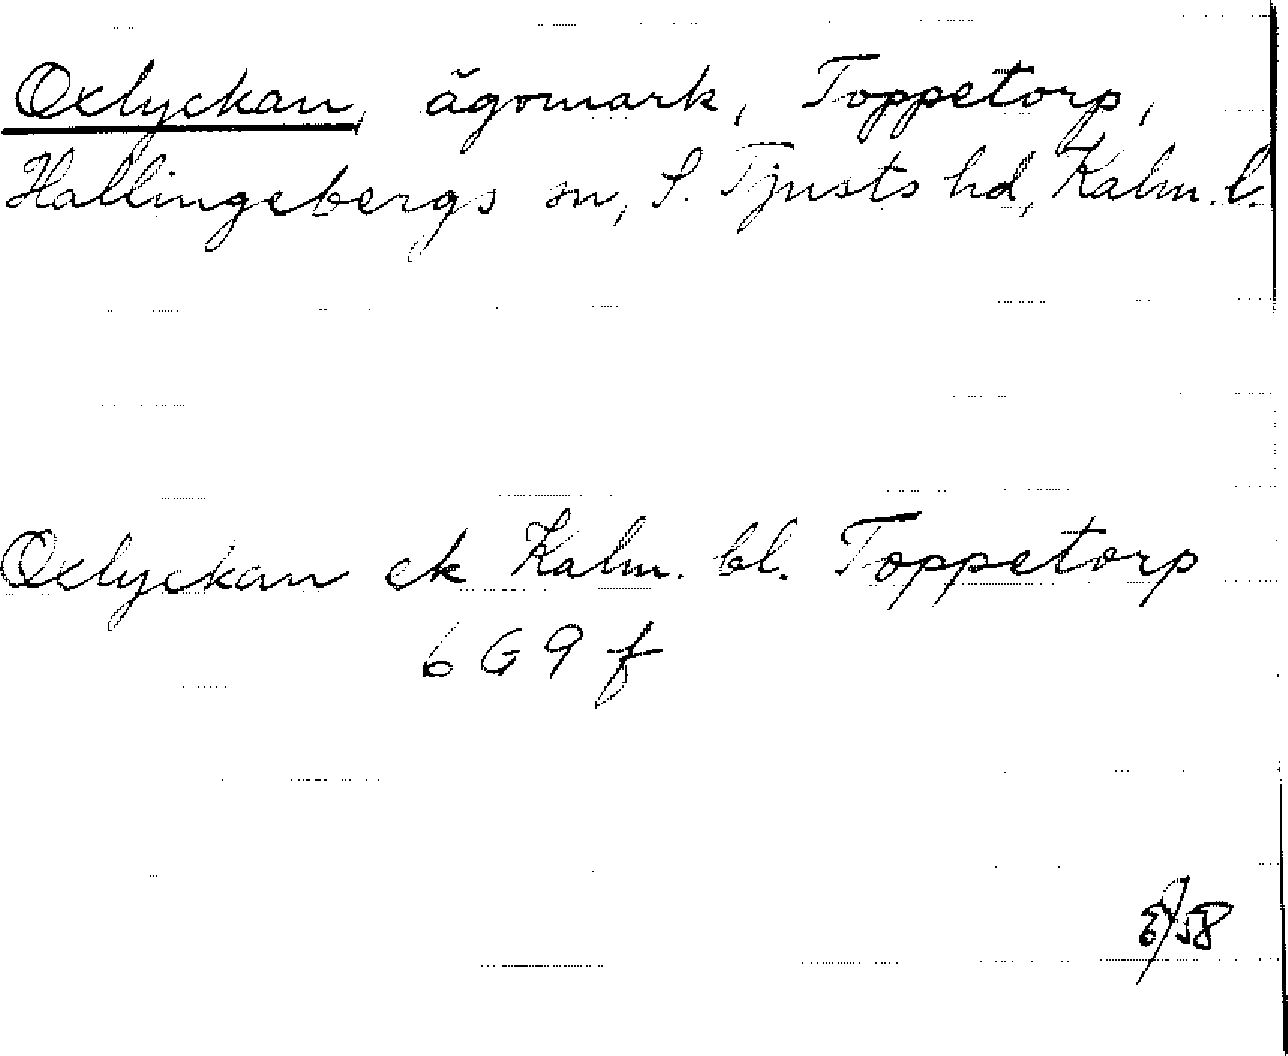 Oxlyckan, ägomark, Toppetorp,
Hallingebergs sn, S. Tjusts hd, Kalm. l.
Oxlyckan ek Kalm. bl. Toppetorp
6 G 9 f